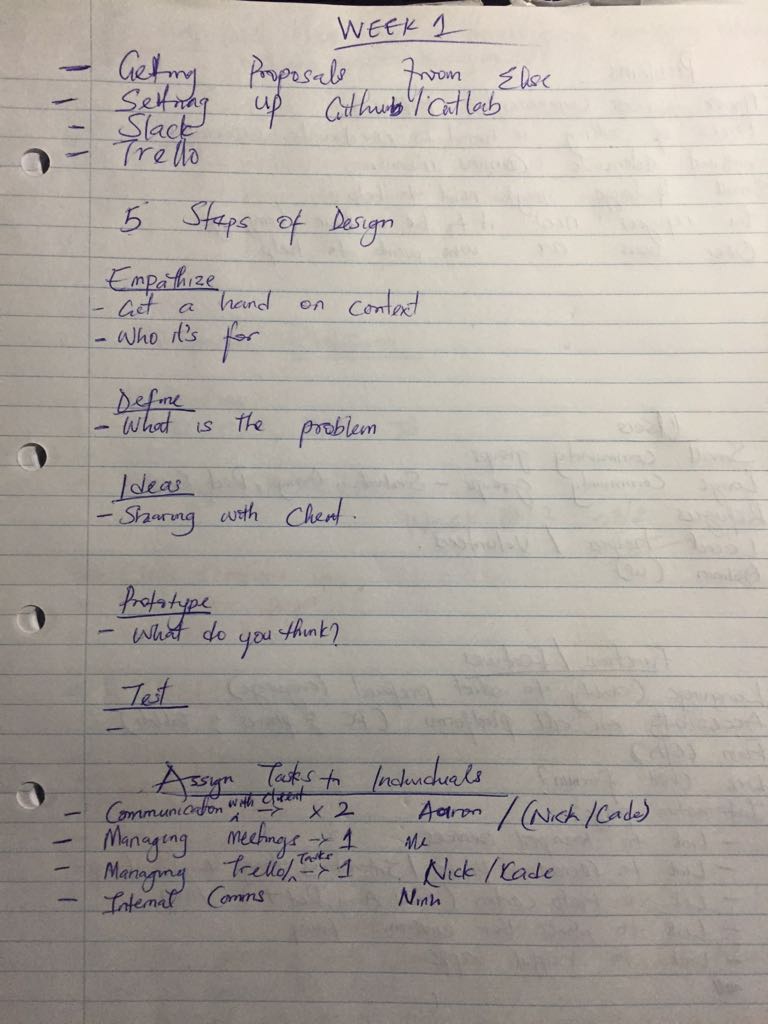 WEEK 1
- Getting Proposals from Else
- Setting up Github/Gitlab
- Slack
- Trello
5 Steps of Design
Empathize
- Get a hand on context
- Who it's for
Define
- What is the problem
Ideas
- Sharing with Client.
Prototype
- What do you think?
Test
-
Assign Tasks to Individuals
- Communication with client -> x 2 Aaron / (Nick / Cade)
- Managing Meetings -> 1 Me
- Managing Trello/Tasks -> 1 Nick / Kade
- Internal Comms Ninh